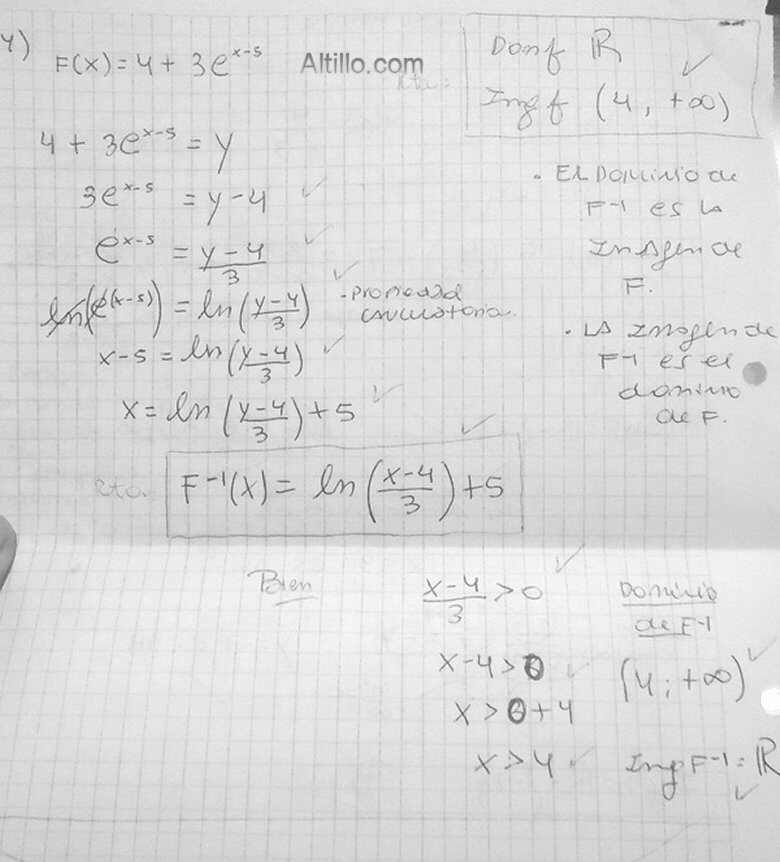 4)
F(x) = 4 + 3e^(x-5)
Altillo.com
Domf ℝ
Imgf (4, +∞)
4 + 3e^(x-5) = y
3e^(x-5) = y-4
e^(x-5) = (y-4)/3
ln(e^(x-5)) = ln((y-4)/3)
x-5 = ln((y-4)/3)
x = ln((y-4)/3) + 5
F^-1(x) = ln((x-4)/3) + 5
. EL Dominio de
F^-1 es la
Imagen de
F.
. LA Imagen de
F^-1 es el
dominio
de F.
Bien
(x-4)/3 > 0
x-4 > 0
x > 0+4
x > 4
Dominio
de F^-1
(4; +∞)
Img F^-1 = ℝ